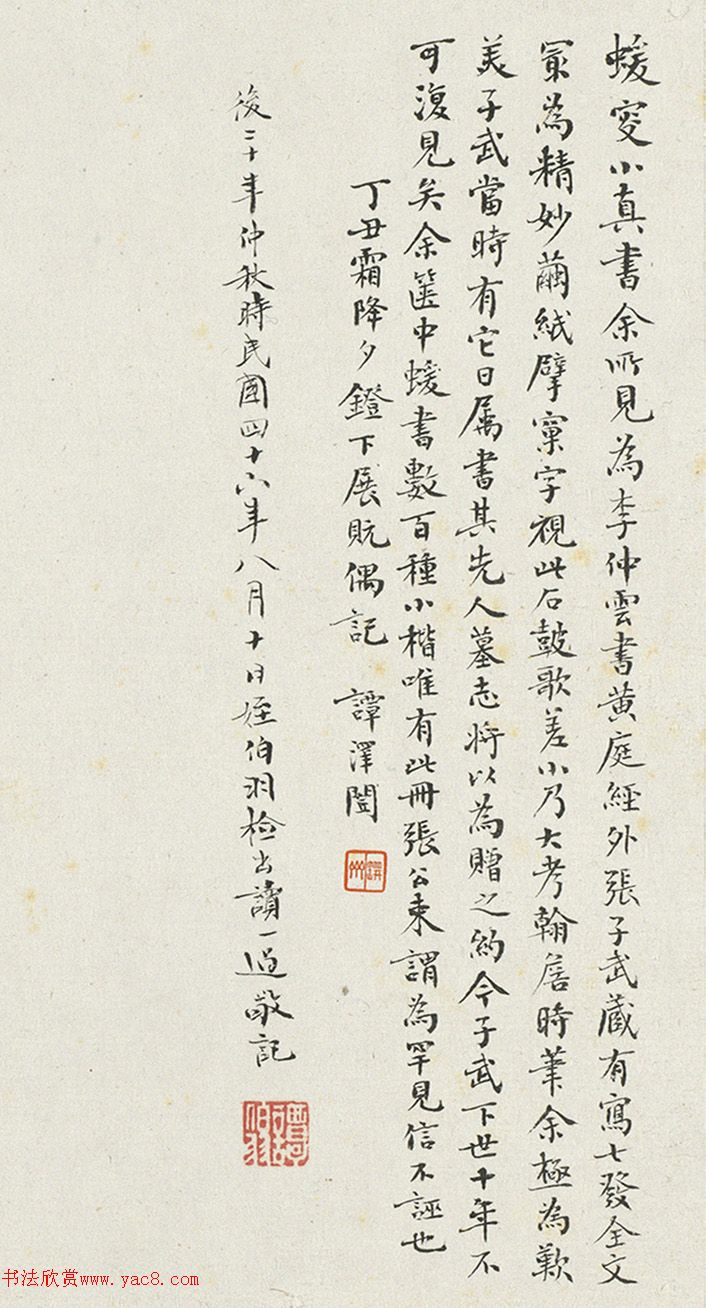 蝯叟小真書余所見為李仲雲書黄庭經外張子武蔵有寫七發全文
冣為精妙繭紙擘窠字視此石鼓歌差小乃大考翰詹時筆余極為歎
美子武當時有它日属書其先人墓志將以為贈之約今子武下世十年不
可復見矣余篋中蝯書數百種小楷唯有此冊張公束謂為罕見信不誣也
丁丑霜降夕鐙下展翫偶記 譚澤闓
後二十年仲秋時民國四十六年八月十日姪伯羽檢出讀一過敬記
譚伯羽
书法欣赏www.yac8.com